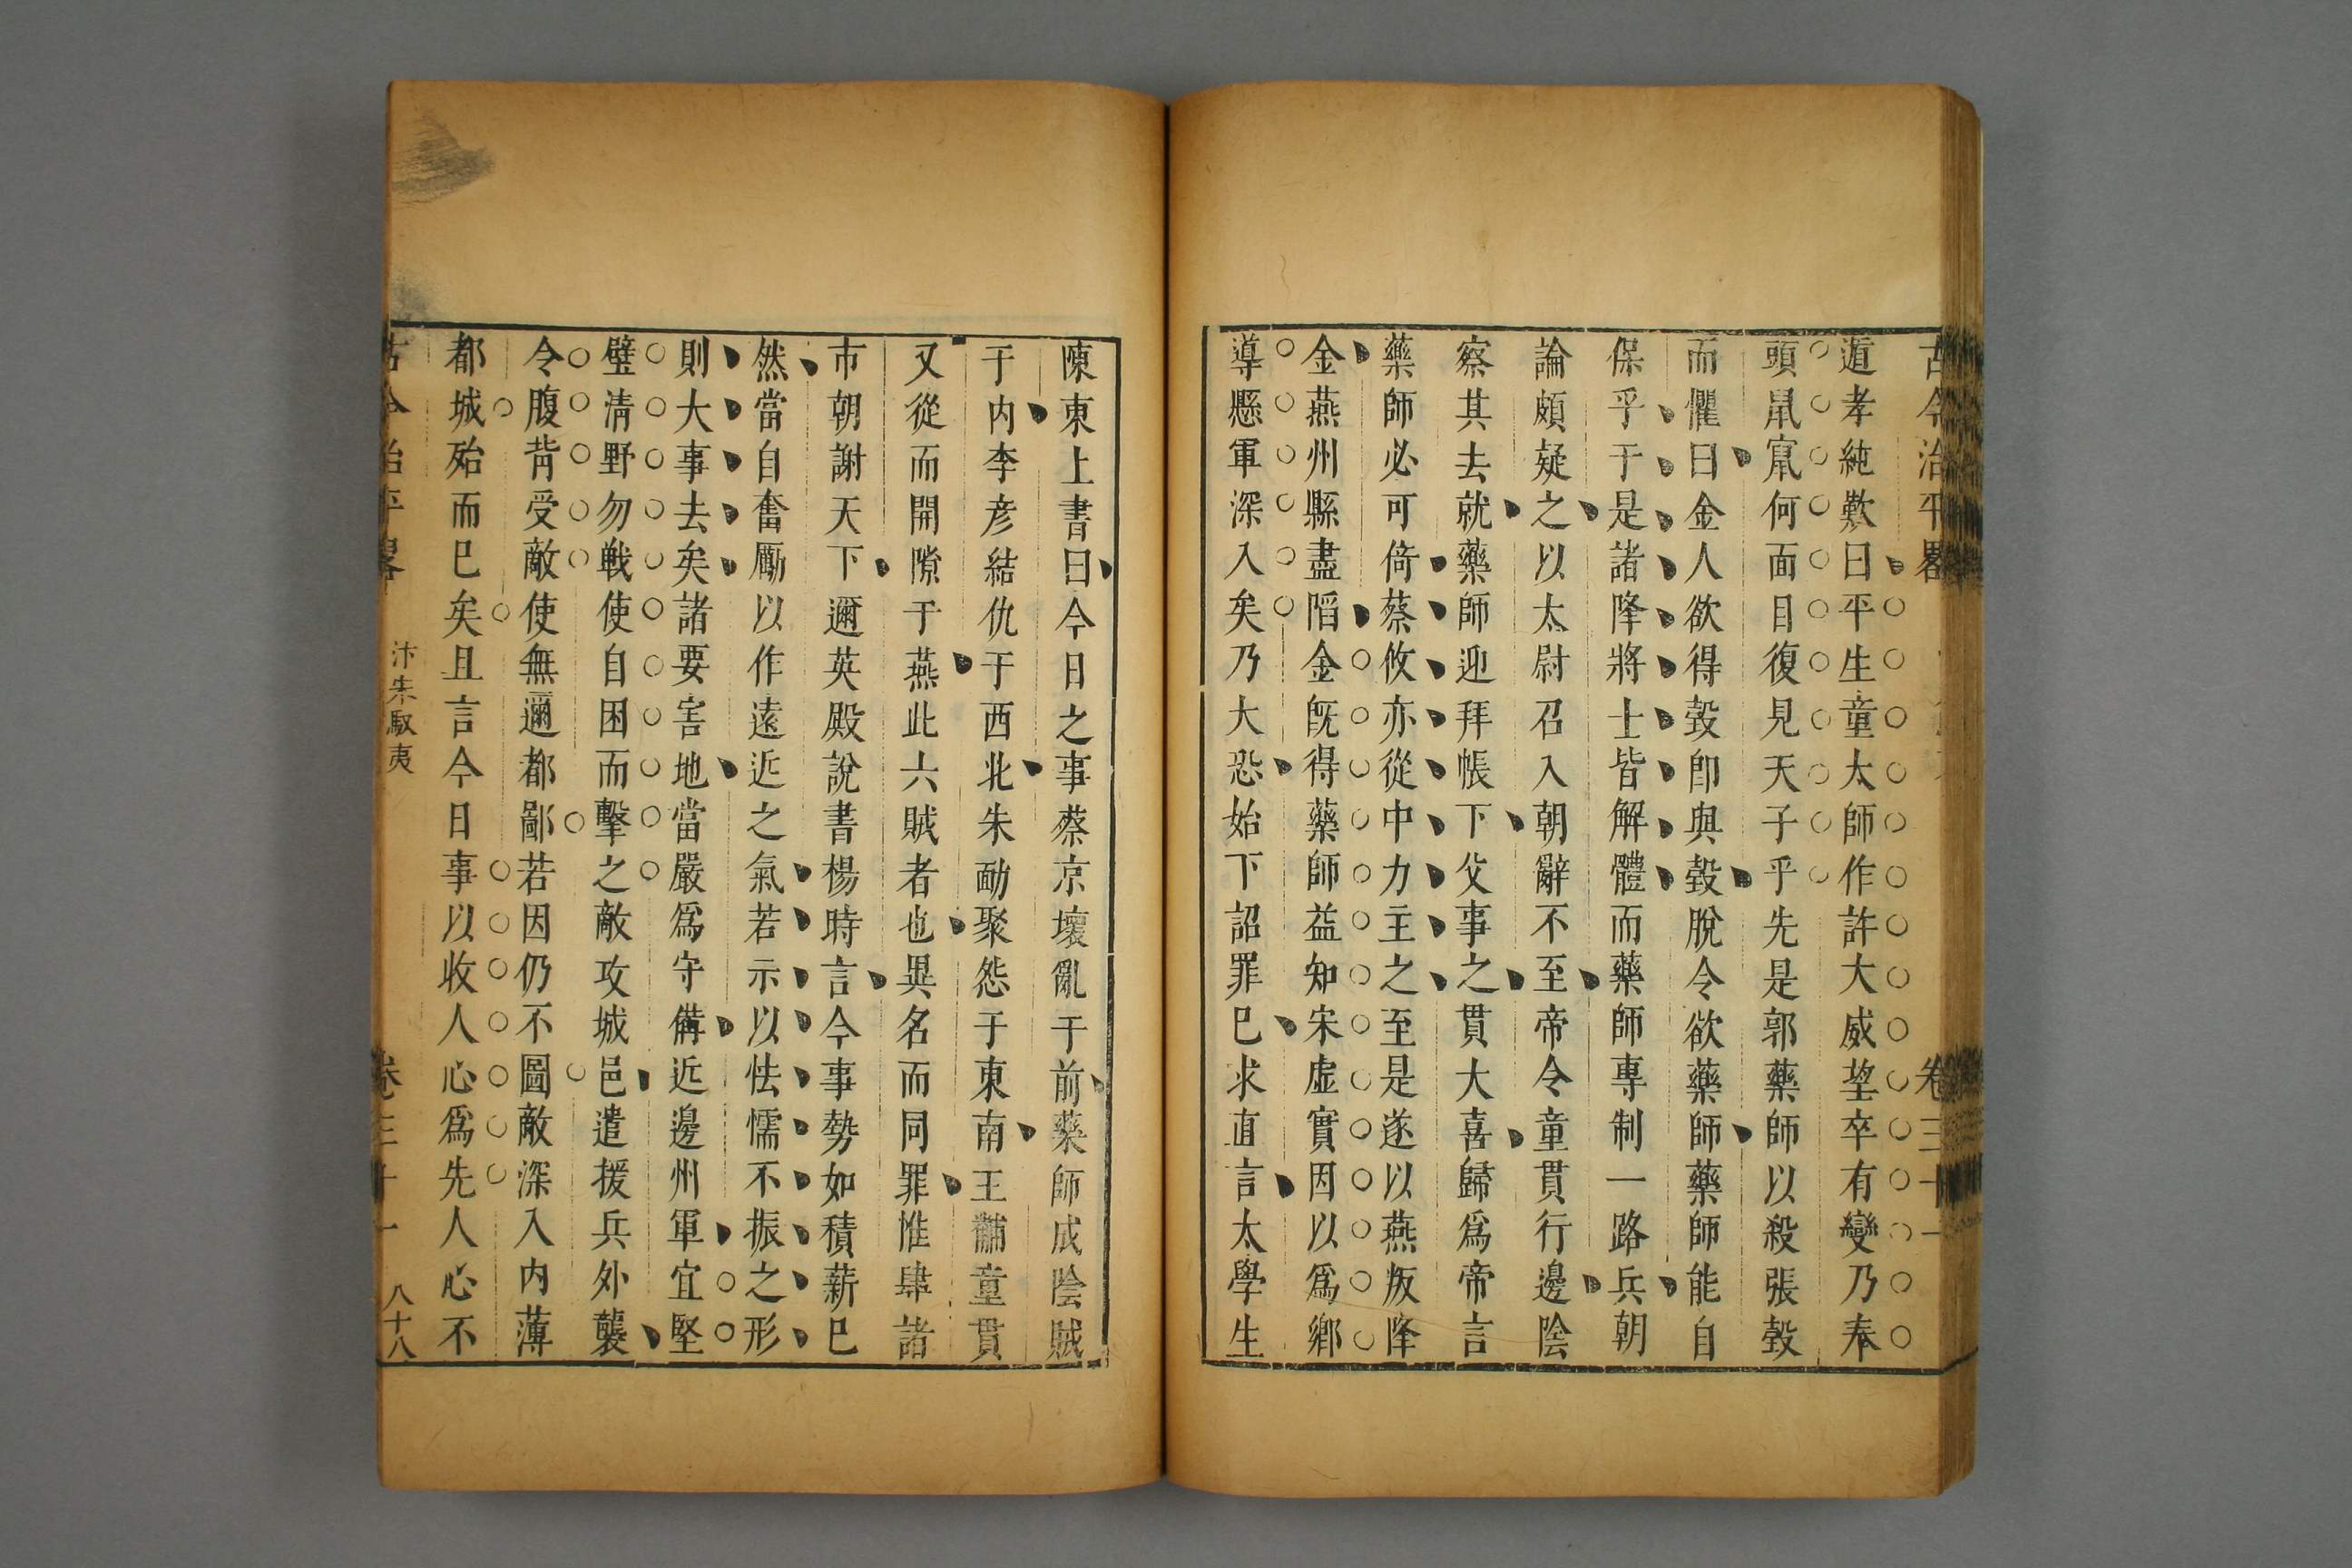 古今治平畧
卷三十一
遁孝純歎曰平生童太師作許大威望卒有變乃奉
頭鼠竄何面目復見天子乎先是郭藥師以殺張瑴
而懼曰金人欲得瑴卽與瑴脫令欲藥師藥師能自
保乎于是諸降將士皆解體而藥師專制一路兵朝
論頗疑之以太尉召入朝辭不至帝令童貫行邊陰
察其去就藥師迎拜帳下父事之貫大喜歸爲帝言
藥師必可倚蔡攸亦從中力主之至是遂以燕叛降
金燕州縣盡陷金旣得藥師益知宋虛實因以爲鄉
導懸軍深入矣乃大恐始下詔罪已求直言太學生
陳東上書曰今日之事蔡京壞亂于前藥師成陰賊
于内李彦結仇于西北朱勔聚怨于東南王黼童貫
又從而開隙于燕此六賊者也異名而同罪惟肆諸
市朝謝天下邇英殿說書楊時言今事勢如積薪已
然當自奮勵以作遠近之氣若示以怯懦不振之形
則大事去矣諸要害地當嚴爲守備近邊州軍宜堅
壁清野勿戰使自困而擊之敵攻城邑遣援兵外襲
令腹背受敵使無邇都鄙若因仍不圖敵深入内薄
都城殆而已矣且言今日事以收人心爲先人心不
古今治平畧
汴宋馭夷
卷三十一
八十八